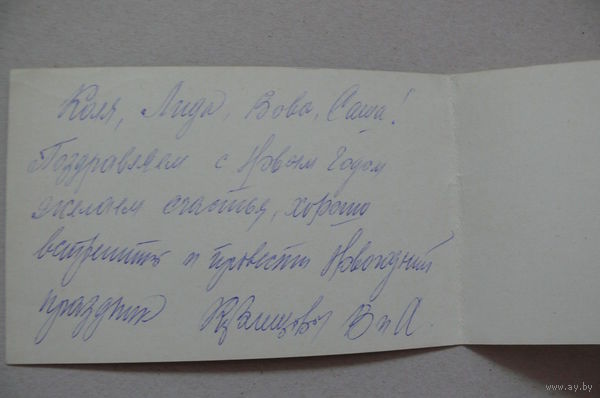 Коля, Лида, Вова, Саша!
Поздравляем с Новым Годом
желаем счастья, хорошо
встретить и провести Новогодний
праздник В и А.
www.ay.by